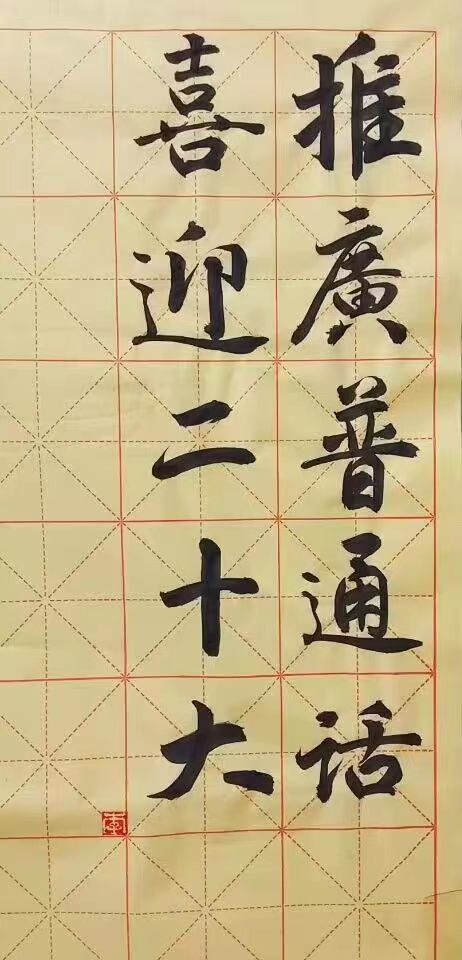 推廣普通话
喜迎二十大